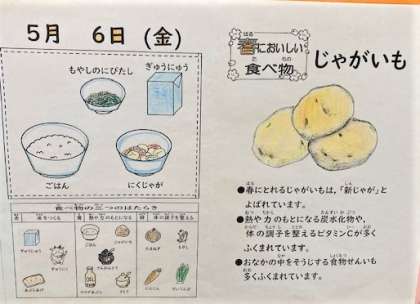 5月 6日 (金)
もやしのにびたし
ぎゅうにゅう
ごはん
にくじゃが
食べ物の三つのはたらき
体をつくる
熱や力のもとになる
体の調子を整える
ごはん
じゃがいも
春においしい
食べ物
じゃがいも
●春にとれるじゃがいもは、「新じゃが」と
よばれています。
●熱や力のもとになる炭水化物や、
体の調子を整えるビタミンCが多く
ふくまれています。
●おなかの中をそうじする食物せんいも
多くふくまれています。